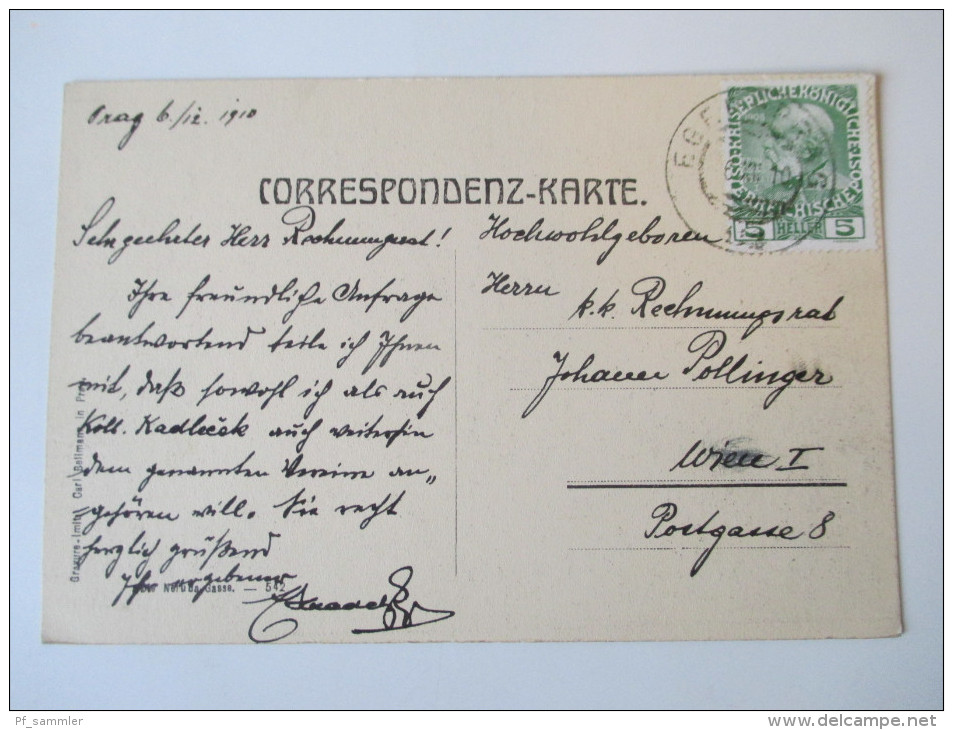 Prag 6./12. 1910
CORRESPONDENZ-KARTE.
Sehr geehrter Herr Rechnungsrat!
Ihre freundliche Anfrage
beantwortend teile ich Ihnen
mit, daß sowohl ich als auch
Koll. Kadleček auch weiterhin
dem genannten Vereine an„
gehören will. Sie recht
herzlich grüßend
Ihr ergebener
Hochwohlgeboren
Herrn
k.k. Rechnungsrat
Johann Pollinger
Wien I
Postgasse 8
KAISERLICHE KÖNIGLICHE ÖSTERREICHISCHE POST
5 HELLER 5
EGER
Gravure-Imit. Carl Bellmann in Prag
Gasse. — 542
Pf_sammler
www.delcampe.net